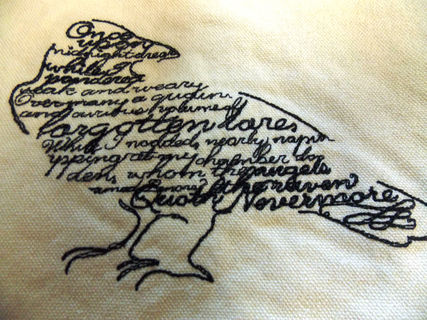 Once
upon
midnight drea
while I
pondered
weak and weary
Over many a quain
and curious volume of
forgotten lores
While I nodded nearly napp
pping at my chamber do
dens whom the angels
the raven
Quoth Nevermore